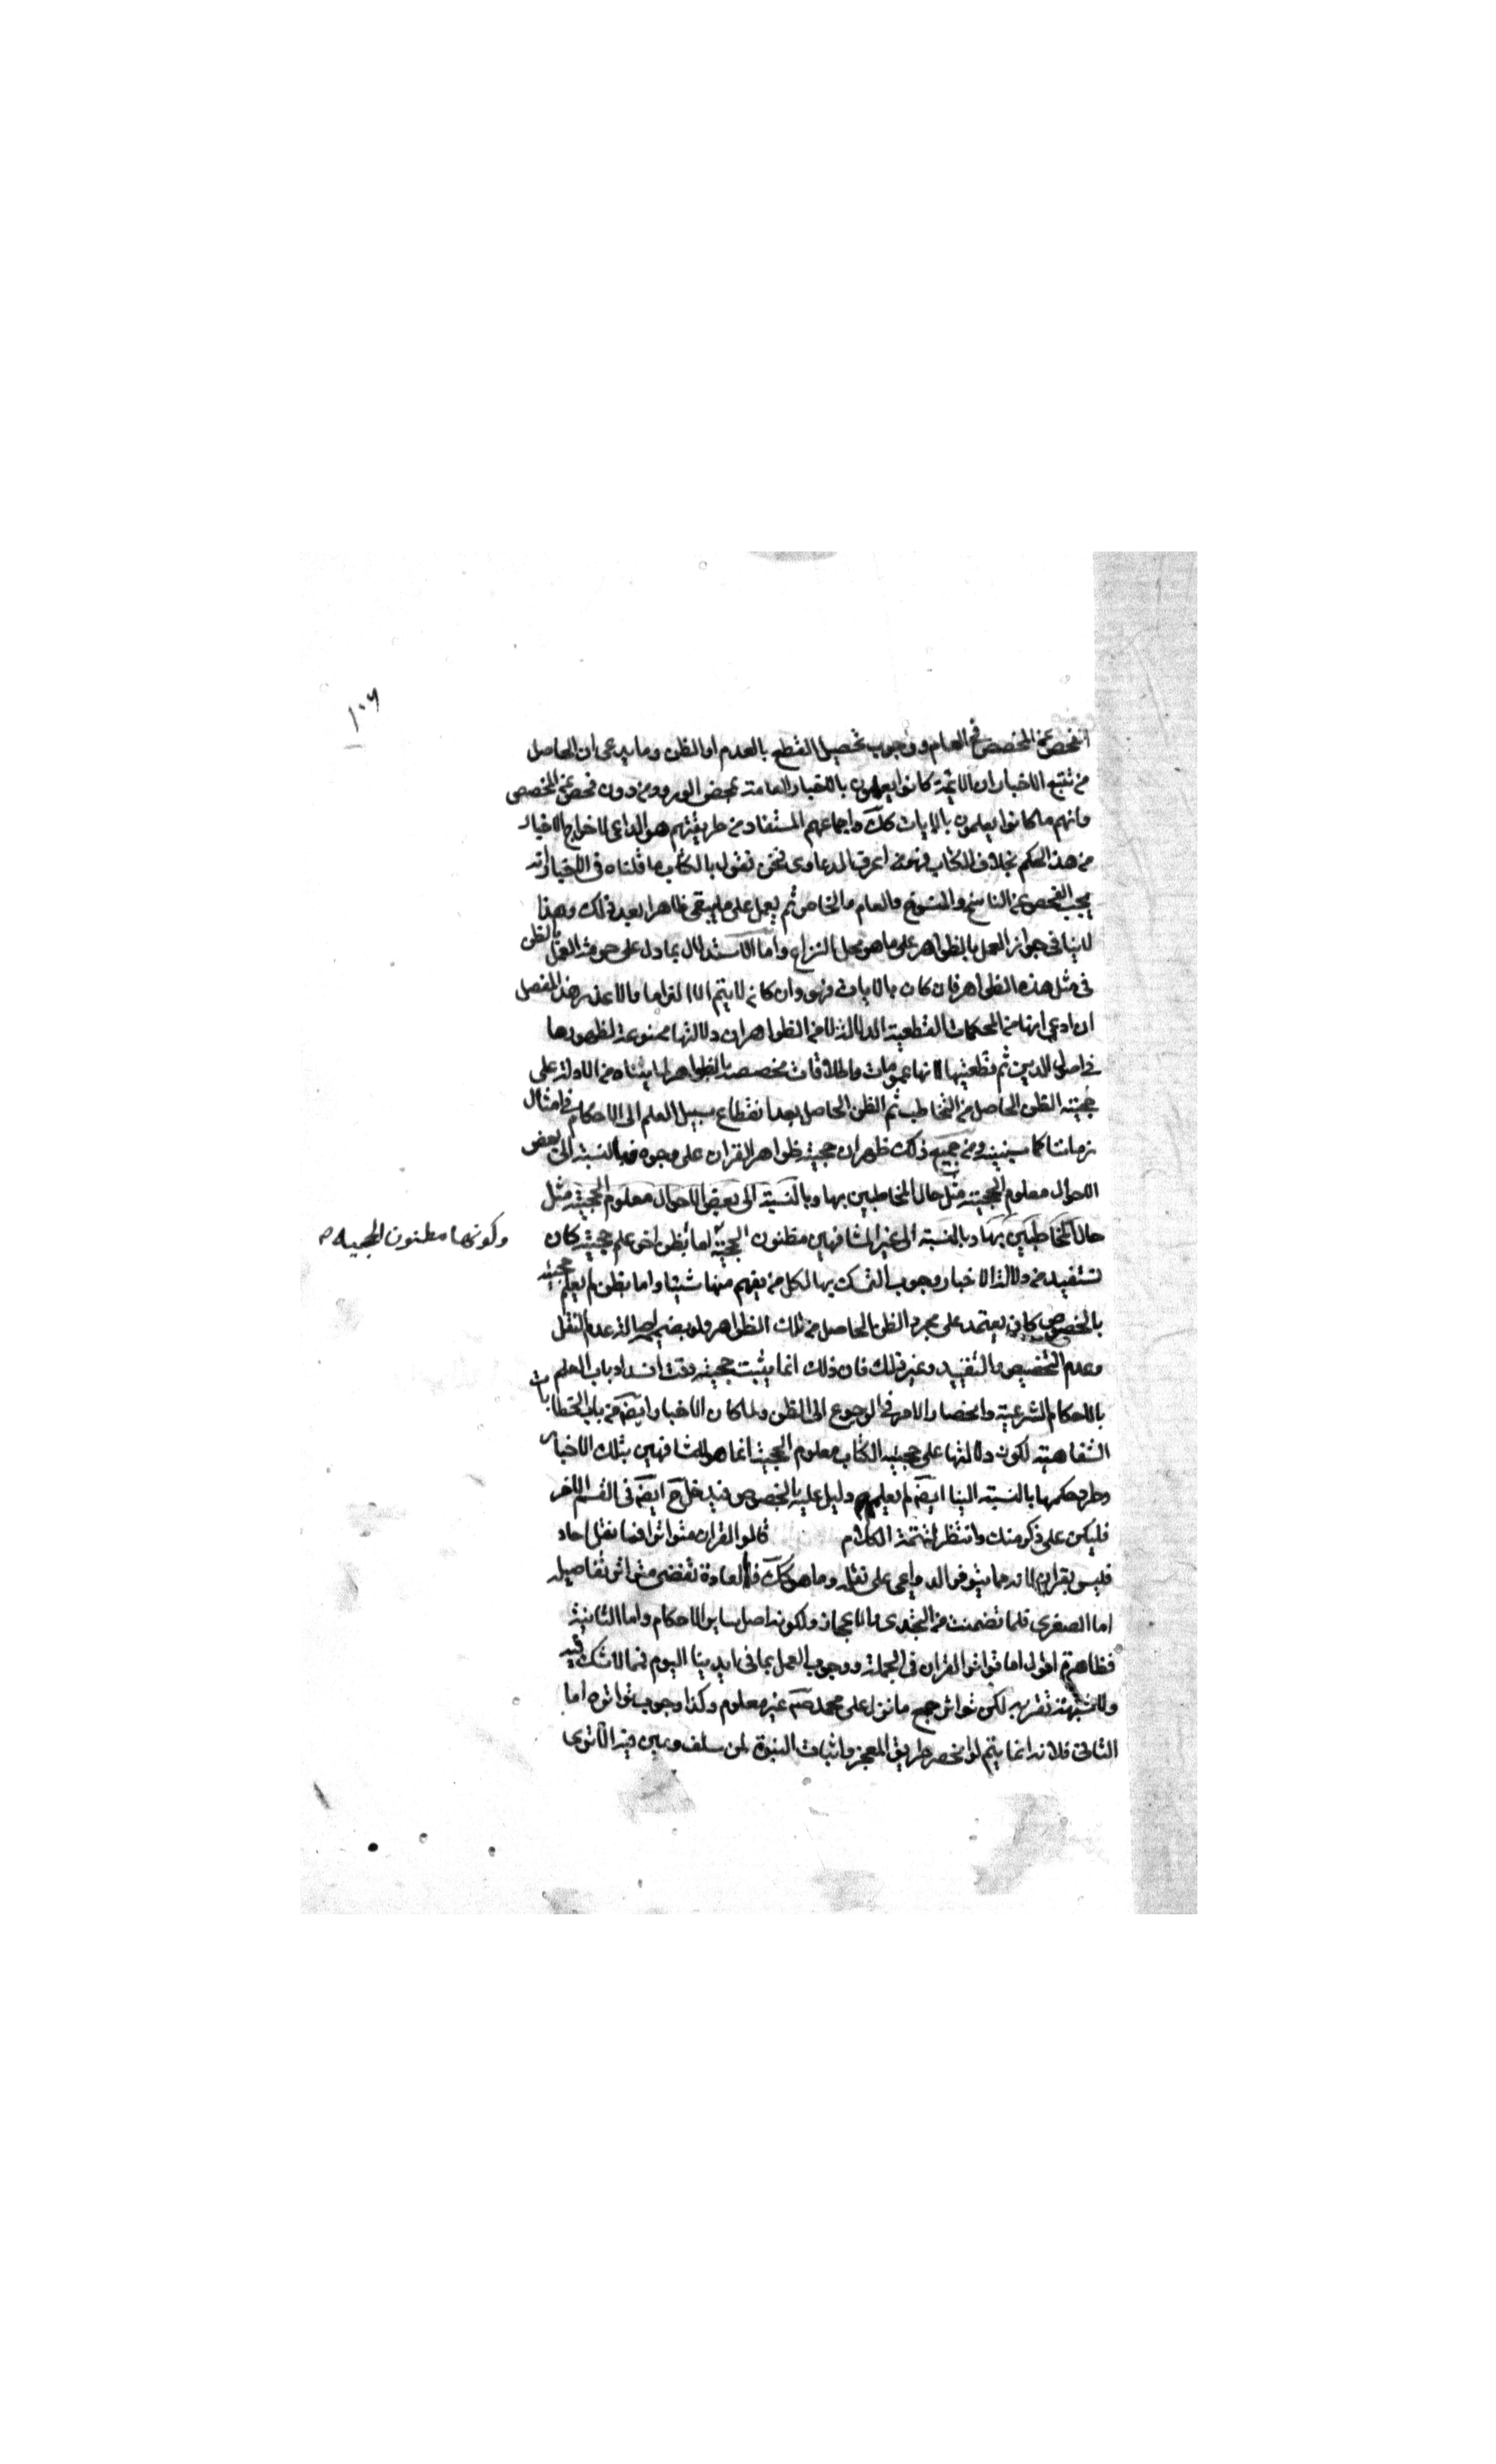 ١٠٦
الفحص عن المخصص في العام ووجوب تحصيل القطع بالعدم او الظن وما يدعى ان الحاصل
من تتبع الاخبار ان الائمة كانوا يعملون بالاخبار العامة بمحض الورود من دون فحص عن المخصص
وانهم ما كانوا يعملون بالايات كك واجماعهم المستفاد من طريقتهم هو الداعى لاخراج الاخبار
من هذا الحكم بخلاف الكتاب فهو من الدعاوى فنحن نقول بالكتاب ما قلناه فى الاخبار انه
يجب الفحص عن الناسخ والمنسوخ والعام والخاص ثم يعمل على ما يبقى ظاهرا بعد ذلك وهذا
لا ينافى جواز العمل بالظواهر على ما هو محل النزاع واما الاستدلال بما دل على حرمة العمل بالظن
فى مثل هذه الظواهر فان كان بالايات فهو وان كان لا يتم الا الزاما والاعتذار هذا المفصل
ان ادعى انها من المحكمات القطعية الدلالة لا من الظواهر ان دلالتها ممنوعة لظهورها
فى اصول الدين ثم قطعيتها لانها عمومات واطلاقات مخصصة بالظواهر لما بيناه من الادلة على
حجية الظن الحاصل من التخاطب ثم الظن الحاصل بعد انقطاع سبيل العلم الى الاحكام فى امثال
زماننا كما سنبينه ومن جميع ذلك ظهر ان حجية ظواهر القران على وجوه فبالنسبة الى بعض
الاحوال معلوم الحجية مثل حال المخاطبين بها وبالنسبة الى بعض الاحوال معلوم الحجية مثل
حال المخاطبين بها وبالنسبة الى غير المشافهين مظنون الحجية اما بظن اخر علم حجيته كان
وكونها مظنون الحجية
نستفيد من دلالة الاخبار وجوب التمسك بها لكل من يفهم منها شيئا واما بظن لم يعلم حجيته
بالخصوص كان يعتمد على مجرد الظن الحاصل من تلك الظواهر ولو بضميمة اصالة عدم النقل
وعدم التخصيص والتقييد وغير ذلك فان ذلك انما يثبت حجيته وقت انسداد باب العلم
بالاحكام الشرعية وانحصار الامر فى الرجوع الى الظن ولما كان الاخبار ايضه من باب الخطابات
الشفاهية لكون دلالتها على حجية الكتاب معلوم الحجية انما هو للمشافهين بتلك الاخبار
وطرد حكمها بالنسبة الينا ايضه لم يعلم دليل عليه بالخصوص فيدخل ح ايضه فى القسم الاخر
فليكن على ذكر منك وانتظر لتتمة الكلام قالوا القران متواتر فما نقل احاد
فليس بقران لانه مما يتوفر الدواعى على نقله وما هو كك فالعادة تقتضى متواتر تفاصيله
اما الصغرى فلما تضمنت من التحدى والاعجاز ولكونه اصل ساير الاحكام واما الثانية
فظاهرة اقول اما تواتر القران فى الجملة ووجوب العمل بما فى ايدينا اليوم فمما لا شك فيه
ولا شبهة تعتريه لكن تواتر جميع ما نزل على محمد صه غير معلوم وكذا وجوب تواتره اما
الثانى فلانه انما يتم لو انحصر طريق المعجزة واثبات النبوة لمن سلف وغبر فيه الا ترى